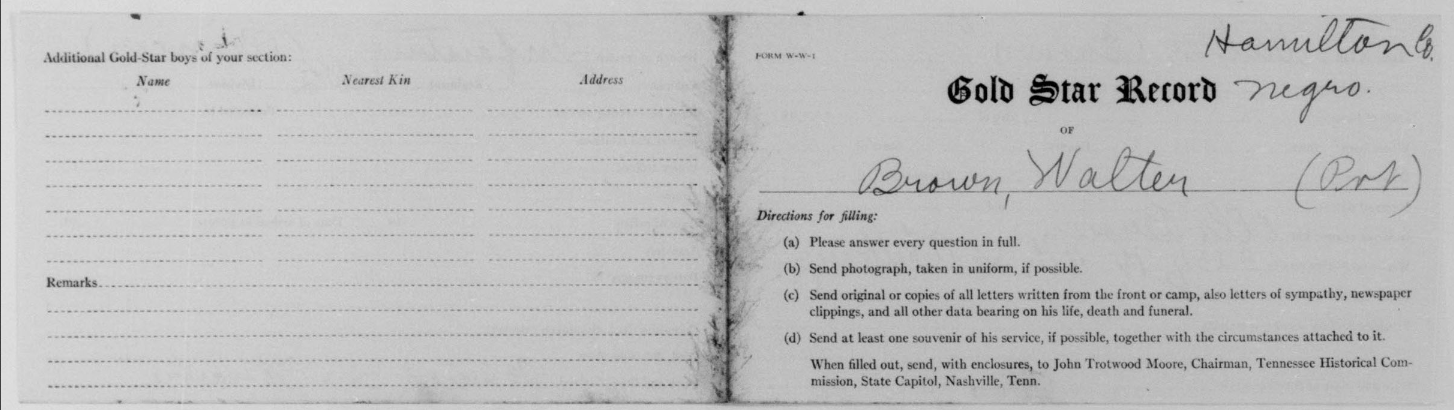 Additional Gold-Star boys of your section:
Name Nearest Kin Address
Remarks
FORM W-W-1
Hamilton Co.
Gold Star Record negro.
OF
Brown, Walter (Pvt)
Directions for filling:
(a) Please answer every question in full.
(b) Send photograph, taken in uniform, if possible.
(c) Send original or copies of all letters written from the front or camp, also letters of sympathy, newspaper
clippings, and all other data bearing on his life, death and funeral.
(d) Send at least one souvenir of his service, if possible, together with the circumstances attached to it.
When filled out, send, with enclosures, to John Trotwood Moore, Chairman, Tennessee Historical Com-
mission, State Capitol, Nashville, Tenn.